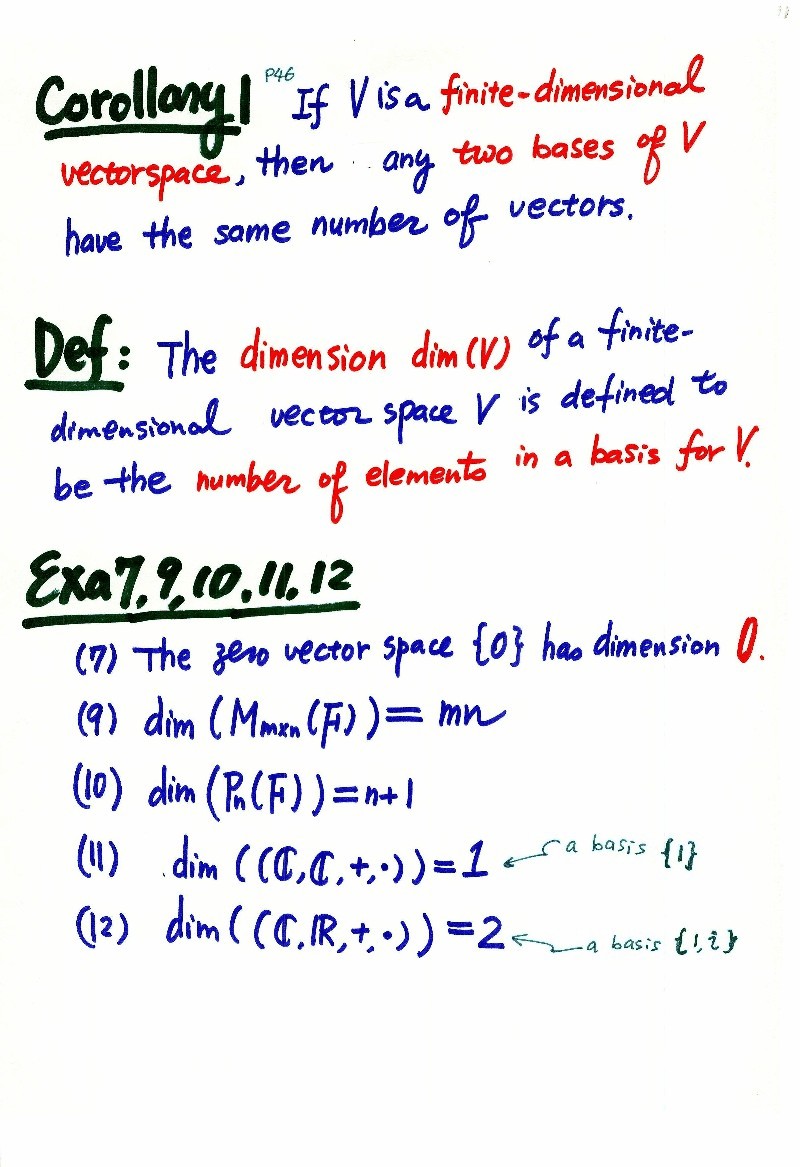 Corollary 1 P46 If V is a finite-dimensional
vectorspace, then any two bases of V
have the same number of vectors.
Def: The dimension dim(V) of a finite-
dimensional vector space V is defined to
be the number of elements in a basis for V.
Exa 7, 9, 10, 11, 12
(7) The zero vector space {0} has dimension 0.
(9) dim (Mmxn(F)) = mn
(10) dim (Pn(F)) = n+1
(11) dim ((ℂ, ℂ, +, ·)) = 1 a basis {1}
(12) dim ((ℂ, ℝ, +, ·)) = 2 a basis {1, i}